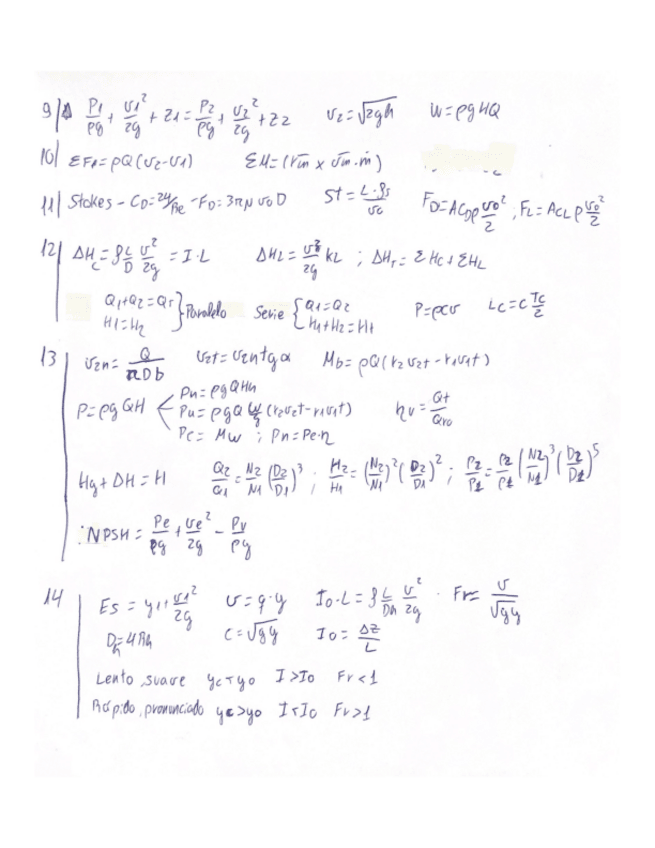 9| P1/ρg + v1²/2g + z1 = P2/ρg + v2²/2g + z2   v2 = √2gh   W = ρgHQ
10| ΣF1 = ρQ(v2-v1)   ΣM = (r̄m x v̄m·ṁ)
11| Stokes - CD = 24/Re - FD = 3πμ v0 D   St = L·fs/v0   FD = ACDρ v0²/2 ; FL = ACLρ v0²/2
12| ΔHc = f L/D v²/2g = I·L   ΔHL = v²/2g kL ; ΔHT = ΣHc + ΣHL
Q1+Q2 = QT H1 = H2 } Paralelo   Serie { Q1 = Q2 H1+H2 = Ht   P = ρcv   Lc = c Tc/2
13 | v2n = Q/πDb   v2t = v2n tgα   Mb = ρQ(r2v2t - r1v1t)
P = ρgQH < Pn = ρgQHn
Pu = ρgQ w/g (r2v2t - r1v1t)   ηv = Qt/Qro
Pe = Mw ; Pn = Pe·η
Hg + ΔH = H   Q2/Q1 = N2/N1 (D2/D1)³ ; H2/H1 = (N2/N1)² (D2/D1)² ; P2/P1 = ρ2/ρ1 (N2/N1)³ (D2/D1)⁵
NPSH = Pe/ρg + ve²/2g - Pv/ρg
14 | Es = y1 + v1²/2g   v = q·y   I0·L = f L/Dh v²/2g · Fr = v/√gy
Dh = 4Rh   c = √gy   I0 = Δz/L
Lento, suave   yc < y0   I > I0   Fr < 1
Rápido, pronunciado   yc > y0   I < I0   Fr > 1